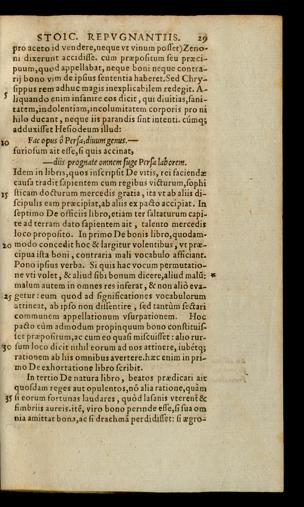 STOIC. REPVGNANTIIS. 29
pro aceto id vendere, neque vt vinum posset) Zeno-
ni dixerunt accidisse. cùm præpositum seu præci-
puum, quod appellabat, neque boni neque contra-
rij bono vim de ipsius sententia haberet. Sed Chry-
sippus rem adhuc magis inexplicabilem redegit. A-
5 liquando enim insanire eos dicit, qui diuitias, sani-
tatem, indolentiam, incolumitatem corporis pro ni
hilo ducant, neque iis parandis sint intenti. cúmq;
adduxisset Hesiodeum illud:
10 Fac opus ô Persa, diuum genus.—
furiosum ait esse, si quis accinat,
—diis prognate omnem fuge Persa laborem.
Idem in libris, quos inscripsit De vitis, rei faciendæ
causa tradit sapientem cum regibus victurum, sophi
15 sticam docturum mercedis gratia, ita vt ab aliis di-
scipulis eam præcipiat, ab aliis ex pacto accipiat. In
septimo De officiis libro, etiam ter saltaturum capi-
te ad terram dato sapientem ait, talento mercedis
loco proposito. In primo De bonis libro, quodam-
20 modo concedit hoc & largitur volentibus, vt præ-
cipua ista boni, contraria mali vocabulo afficiant.
Pono ipsius verba. Si quis hac vocum permutatio-
ne vti volet, & aliud sibi bonum dicere, aliud malū: *
malum autem in omnes res inferat, & non aliò eva-
25 getur: eum quod ad significationes vocabulorum
attinet, ab ipso non dissentire, sed tantùm sectari
communem appellationum vsurpationem. Hoc
pacto cùm admodum propinquum bono constituis-
set præpositum, ac cum eo quasi miscuisset: alio rur-
30 sum loco dicit nihil eorum ad nos attinere, iubétq;
rationem ab his omnibus avertere. hæc enim in pri-
mo De exhortatione libro scribit.
In tertio De natura libro, beatos prædicari ait
quosdam reges aut opulentos, nō alia ratione, quàm
35 si eorum fortunas laudares, quòd lasanis vterent &
fimbriis aureis. itē, viro bono perinde esse, si sua om
nia amittat bona, ac si drachmā perdidisset: si ægro-